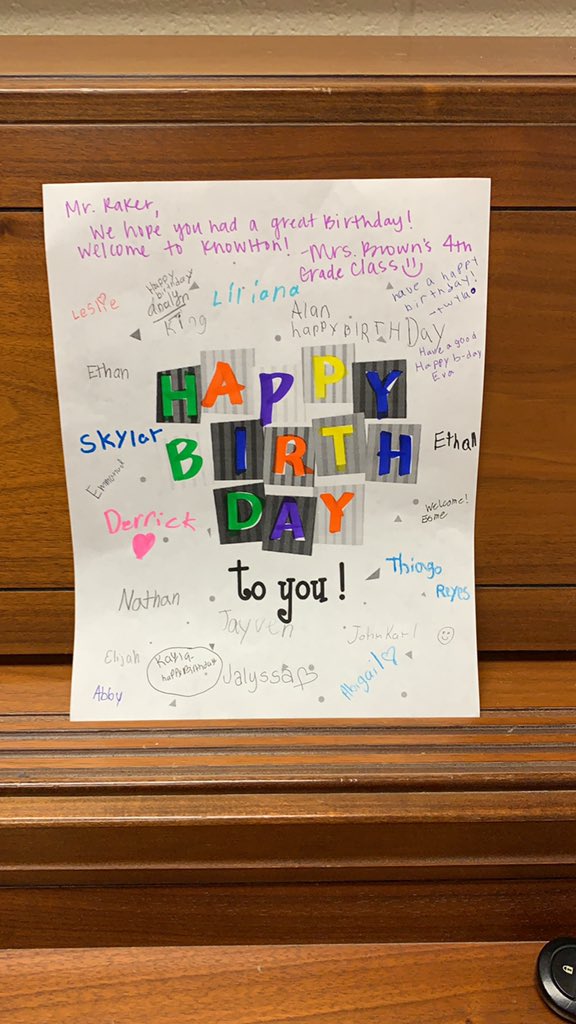 Mr. Raker,
We hope you had a great Birthday!
Welcome to Knowlton! -Mrs. Brown's 4th
Grade Class
Leslie
Happy
birthday
King
Liliana
Alan
happy BIRTHDay
have a happy
birthday!
-twyla
Have a good
Happy b-day
Eva
Ethan
HAPPY
BIRTH
DAY
to you!
Skylar
Ethan
Emmanuel
Derrick
Welcome!
Esme
Thiago
Reyes
Nathan
Jayven
JohnKarl
Elijah
Kayla-
happy Birthday
Jalyssa
Abigail
Abby